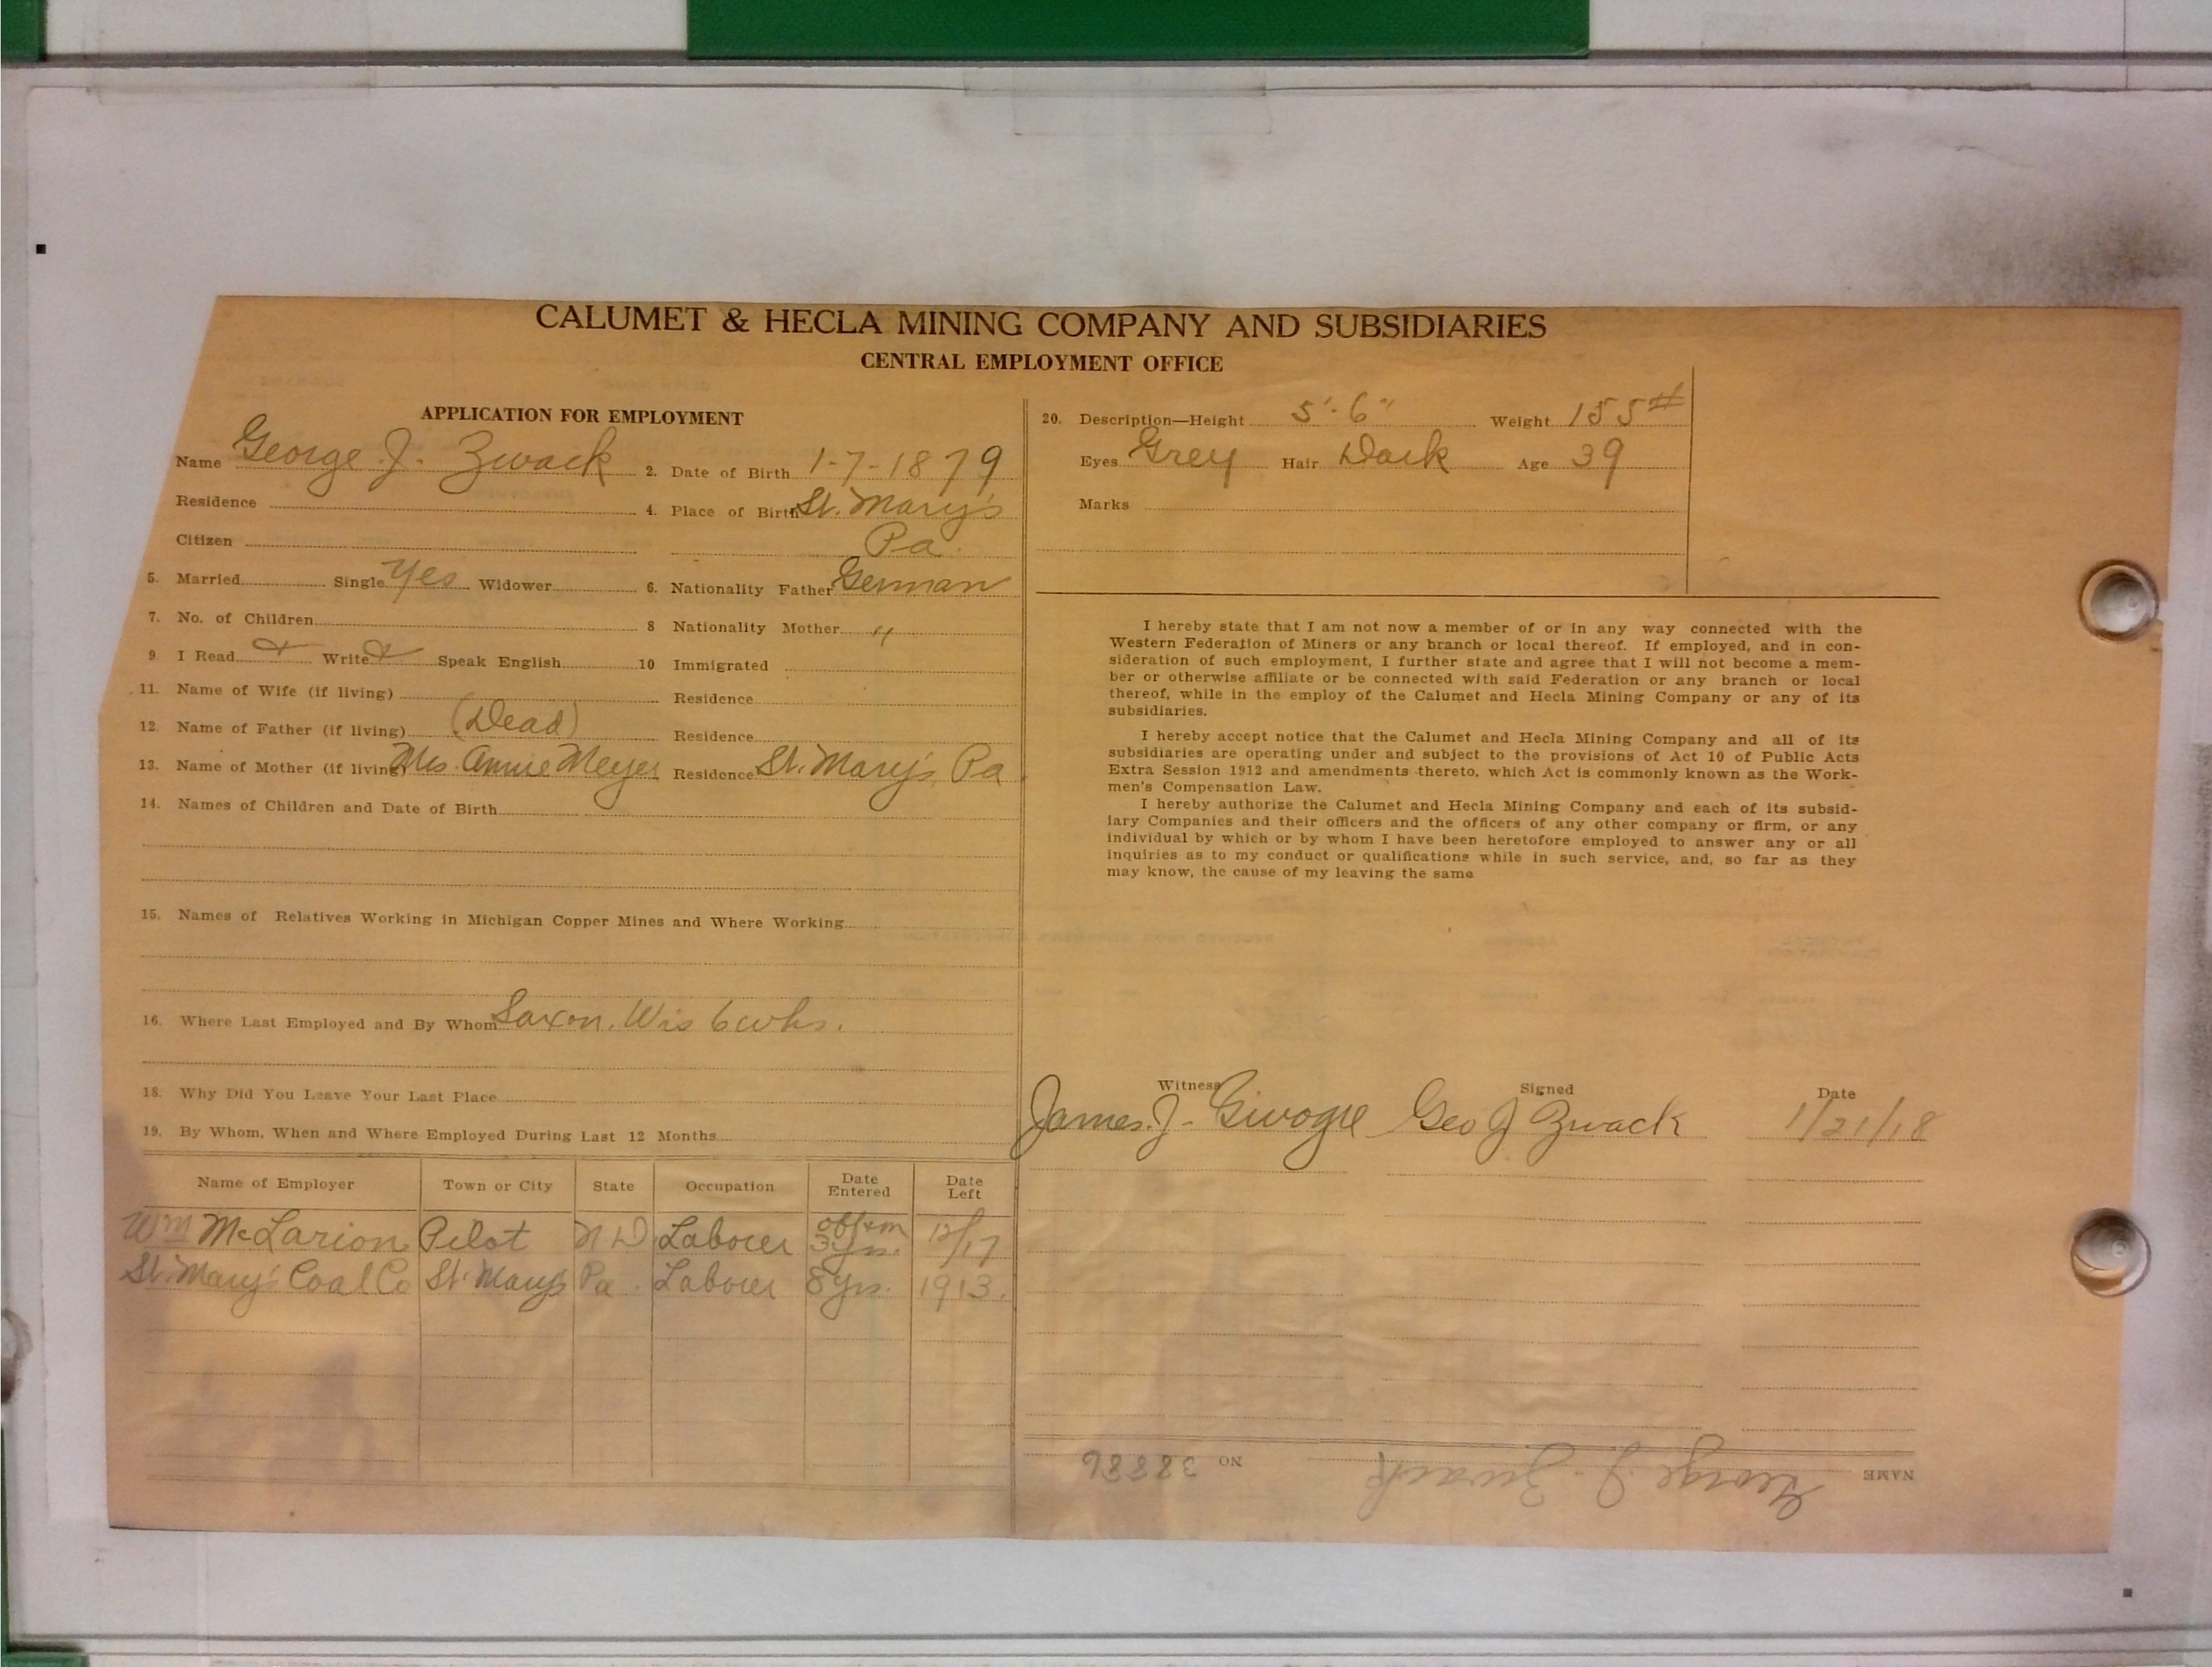 CALUMET & HECLA MINING COMPANY AND SUBSIDIARIES
CENTRAL EMPLOYMENT OFFICE
APPLICATION FOR EMPLOYMENT
Name George J. Zwack 2. Date of Birth 1-7-1879
Residence 4. Place of Birth St. Mary's
Citizen Pa.
5. Married Single Yes Widower 6. Nationality Father German
7. No. of Children 8 Nationality Mother "
9. I Read Write Speak English 10 Immigrated
11. Name of Wife (if living) Residence
12. Name of Father (if living) (Dead) Residence
13. Name of Mother (if living) Mrs. Annie Meyer Residence St. Mary's, Pa.
14. Names of Children and Date of Birth
15. Names of Relatives Working in Michigan Copper Mines and Where Working
16. Where Last Employed and By Whom Saxon, Wis 6 wks.
18. Why Did You Leave Your Last Place
19. By Whom, When and Where Employed During Last 12 Months
Name of Employer Town or City State Occupation Date Entered Date Left
Wm McLarion Pilot N D Laborer 3 yrs. 12/17
St. Mary's Coal Co St. Marys Pa. Laborer 8 yrs. 1913.
20. Description—Height 5'-6" Weight 155#
Eyes Grey Hair Dark Age 39
Marks
I hereby state that I am not now a member of or in any way connected with the
Western Federation of Miners or any branch or local thereof. If employed, and in con-
sideration of such employment, I further state and agree that I will not become a mem-
ber or otherwise affiliate or be connected with said Federation or any branch or local
thereof, while in the employ of the Calumet and Hecla Mining Company or any of its
subsidiaries.
I hereby accept notice that the Calumet and Hecla Mining Company and all of its
subsidiaries are operating under and subject to the provisions of Act 10 of Public Acts
Extra Session 1912 and amendments thereto, which Act is commonly known as the Work-
men's Compensation Law.
I hereby authorize the Calumet and Hecla Mining Company and each of its subsid-
iary Companies and their officers and the officers of any other company or firm, or any
individual by which or by whom I have been heretofore employed to answer any or all
inquiries as to my conduct or qualifications while in such service, and, so far as they
may know, the cause of my leaving the same
Witness Signed Date
James. J. Givogre Geo J Zwack 1/21/18
NAME George J. Zwack NO 38886